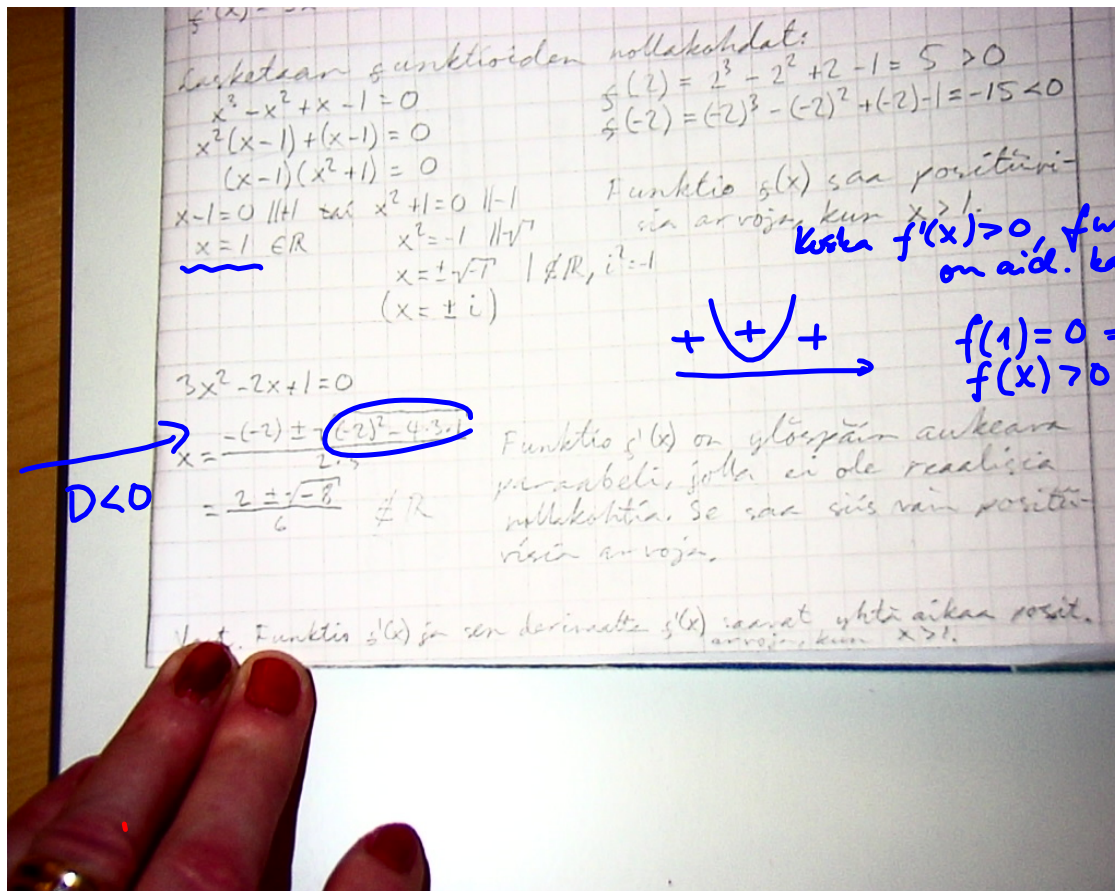 f'(x) = 3x
Lasketaan funktioiden nollakohdat:
x³ - x² + x - 1 = 0
x²(x-1) + (x-1) = 0
(x-1)(x²+1) = 0
x-1=0 ||+1 tai x²+1=0 ||-1
x=1 ∈ℝ
x²=-1 ||√
x=±√-1 | ∉ℝ, i²=-1
(x=±i)
f(2) = 2³ - 2² + 2 - 1 = 5 > 0
f(-2) = (-2)³ - (-2)² + (-2) - 1 = -15 < 0
Funktio f(x) saa positiivi-
sia arvoja, kun x > 1.
Koska f'(x)>0,
on aid.
+ + +
f(1)=0
f(x)>0
3x² - 2x + 1 = 0
x = -(-2) ± √(-2)² - 4·3·1
2·3
D<0
= 2 ± √-8 ∉ ℝ
6
Funktio f'(x) on ylöspäin aukeava
paraabeli, jolla ei ole reaalisia
nollakohtia. Se saa siis vain positii-
visia arvoja.
Vast. Funktio f'(x) ja sen derivaatta f'(x) saavat yhtä aikaa posit.
arvoja, kun x>1.